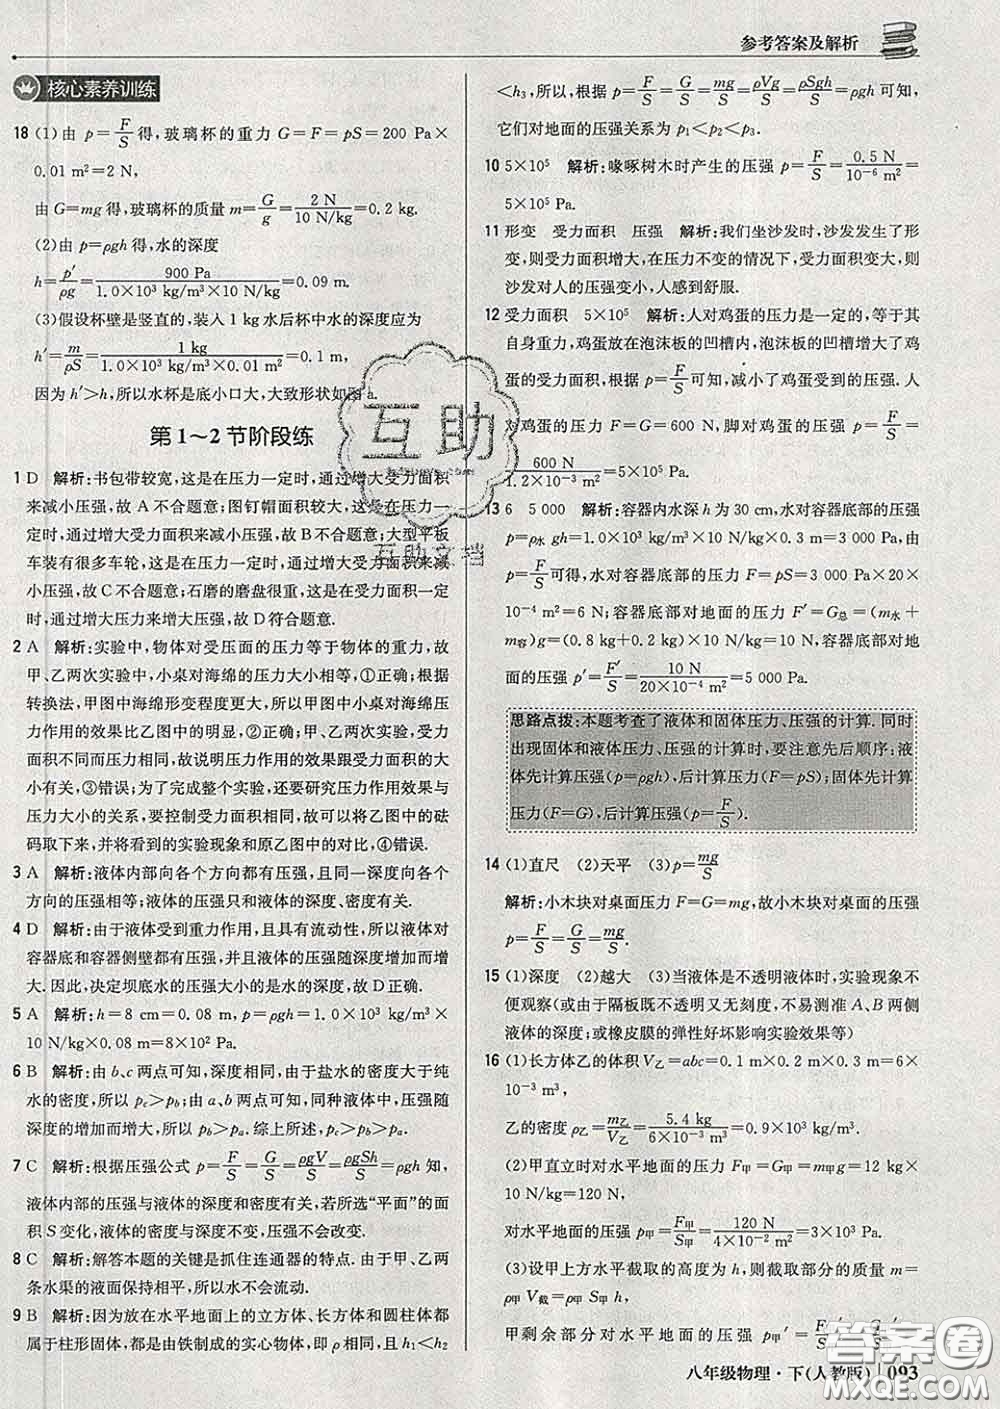 参考答案及解析
核心素养训练
18 (1)由 p=F/S 得,玻璃杯的重力 G=F=pS=200 Pa×
0.01 m²=2 N,
由 G=mg 得,玻璃杯的质量 m=G/g=2 N/10 N/kg=0.2 kg.
(2)由 p=ρgh 得,水的深度
h=p′/ρg=900 Pa/1.0×10³ kg/m³×10 N/kg=0.09 m.
(3)假设杯壁是竖直的,装入 1 kg 水后杯中水的深度应为
h′=m/ρS=1 kg/1.0×10³ kg/m³×0.01 m²=0.1 m,
因为 h′>h,所以水杯是底小口大,大致形状如图 a.
第 1～2 节阶段练
1 D 解析:书包带较宽,这是在压力一定时,通过增大受力面积
来减小压强,故 A 不合题意;图钉帽面积较大,这是在压力一
定时,通过增大受力面积来减小压强,故 B 不合题意;大型平板
车装有很多车轮,这是在压力一定时,通过增大受力面积来减
小压强,故 C 不合题意;石磨的磨盘很重,这是在受力面积一定
时,通过增大压力来增大压强,故 D 符合题意.
2 A 解析:实验中,物体对受压面的压力等于物体的重力,故
甲、乙两次实验中,小桌对海绵的压力大小相等,①正确;根据
转换法,甲图中海绵形变程度更大,所以甲图中小桌对海绵压
力作用的效果比乙图中的明显,②正确;甲、乙两次实验中,受
力面积不同而压力相同,故说明压力的作用效果跟受力面积的
大小有关,③错误;为了完成整个实验,还要研究压力作用效果
与压力大小的关系,要控制受力面积相同,故可以将乙图中的砝
码取下来,并将看到的实验现象和原乙图中的对比,④错误.
3 A 解析:液体内部向各个方向都有压强,且在同一深度向各个方
向的压强相等;液体的压强只和液体的深度、密度有关.
4 D 解析:由于液体受到重力作用,且具有流动性,所以液体对
容器底和容器侧壁都有压强,并且液体的压强随深度增加而增
大.因此,决定坝底水的压强大小的是水的深度,故 D 正确.
5 A 解析:h=8 cm=0.08 m, p=ρgh=1.0×10³ kg/m³×
10 N/kg×0.08 m=8×10² Pa.
6 B 解析:由 b、c 两点可知,深度相同,由于盐水的密度大于纯
水的密度,所以 pc>pb;由 a、b 两点可知,同种液体中,压强随
深度的增加而增大,所以 pb>pa.综上所述,pc>pb>pa.
7 C 解析:根据压强公式 p=F/S=G/S=ρgV/S=ρgSh/S=ρgh 知,
液体内部的压强与液体的深度和密度有关,若所选“平面”的面
积 S 变化,液体的密度与深度不变,压强不会改变.
8 C 解析:解答本题的关键是抓住连通器的特点.由于甲、乙两
条水渠的液面保持相平,所以水不会流动.
9 B 解析:因为放在水平地面上的立方体、长方体和圆柱体都
属于柱形固体,都是由铁制成的实心物体,即 ρ 相同,且 h₁<h₂
<h₃,所以,根据 p=F/S=G/S=mg/S=ρVg/S=ρSgh/S=ρgh 可知,
它们对地面的压强关系为 p₁<p₂<p₃.
10 5×10⁵ 解析:啄啄树木时产生的压强 p=F/S=0.5 N/10⁻⁶ m²=
5×10⁵ Pa.
11 形变 受力面积 压强 解析:我们坐沙发时,沙发发生了形
变,则受力面积增大,在压力不变的情况下,受力面积变大,则
沙发对人的压强变小,人感到舒服.
12 受力面积 5×10⁵ 解析:人对鸡蛋的压力是一定的,等于其
自身重力,鸡蛋放在泡沫板的凹槽内,泡沫板的凹槽增大了鸡
蛋的受力面积,根据 p=F/S 可知,减小了鸡蛋受到的压强.人
对鸡蛋的压力 F=G=600 N,脚对鸡蛋的压强 p=F/S=
600 N/1.2×10⁻³ m²=5×10⁵ Pa.
13 6 5 000 解析:容器内水深 h 为 30 cm,水对容器底部的压强
p=ρ水gh=1.0×10³ kg/m³×10 N/kg×0.3 m=3 000 Pa,由
p=F/S 可得,水对容器底部的压力 F=pS=3 000 Pa×20
×10⁻⁴ m²=6 N;容器底部对地面的压力 F′=G总=(m水+
m容)g=(0.8 kg+0.2 kg)×10 N/kg=10 N,容器底部对地
面的压强 p′=F′/S=10 N/20×10⁻⁴ m²=5 000 Pa.
思路点拨:本题考查了液体和固体压力、压强的计算.同时
出现固体和液体压力、压强的计算时,要注意先后顺序:液
体先计算压强(p=ρgh),后计算压力(F=pS);固体先计算
压力(F=G),后计算压强(p=F/S).
14 (1)直尺 (2)天平 (3)p=mg/S
解析:小木块对桌面压力 F=G=mg,故小木块对桌面的压强
p=F/S=G/S=mg/S.
15 (1)深度 (2)越大 (3)当液体是不透明液体时,实验现象不
便观察(或由于隔板既不透明又无刻度,不易测准 A、B 两侧
液体的深度;或橡皮膜的弹性好坏影响实验效果等)
16 (1)长方体乙的体积 V乙=abc=0.1 m×0.2 m×0.3 m=6×
10⁻³ m³,
乙的密度 ρ乙=m乙/V乙=5.4 kg/6×10⁻³ m³=0.9×10³ kg/m³.
(2)甲直立时对水平地面的压力 F甲=G甲=m甲g=12 kg×
10 N/kg=120 N,
对水平地面的压强 p甲=F甲/S甲=120 N/4×10⁻² m²=3×10³ Pa.
(3)设甲上方水平截取的高度为 h,则截取部分的质量 m=
ρ甲V截=ρ甲S甲h,
甲剩余部分对水平地面的压强 p甲′=F甲′/S甲
八年级物理·下(人教版) 093
互助
互助文档
答案圈
MXQE.COM